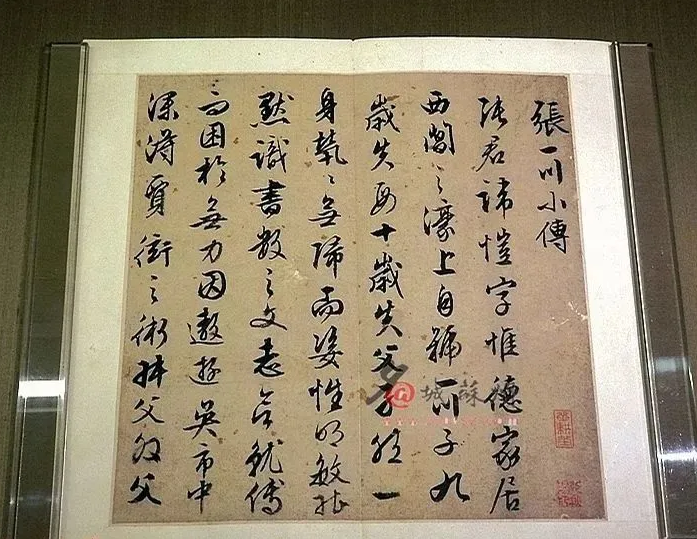 張一川小傳
張君諱愷字惟德家居
西閶之濠上自號一川子九
歲失母十歲失父孑然一
身煢〻無歸而姿性明敏能
默識書數之文就傅
而困於無力因遨遊吳市中
深得賈衒之術父父